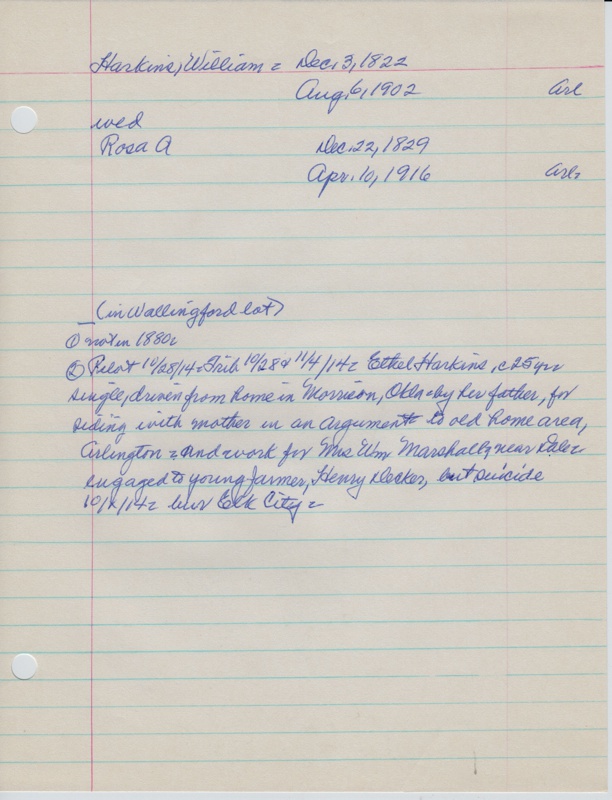 Harkins, William = Dec. 3, 1822
Aug. 6, 1902 Arl
wed
Rosa A Dec. 22, 1829
Apr. 10, 1916 Arl=
(in Wallingford lot)
① not in 1880=
② Pilot 10/28/14= Trib 10/28 & 11/4/14= Ethel Harkins, c 25 yrs
single, driven from home in Morrison, Okla= by her father, for
siding with mother in an argument= to old home area,
Arlington= and work for Mrs Wm Marshall, near Dale=
engaged to young farmer, Henry Decker, but suicide
/14= bur Elk City=